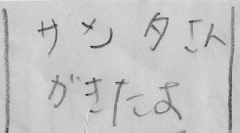 サンタさん
がきたよ